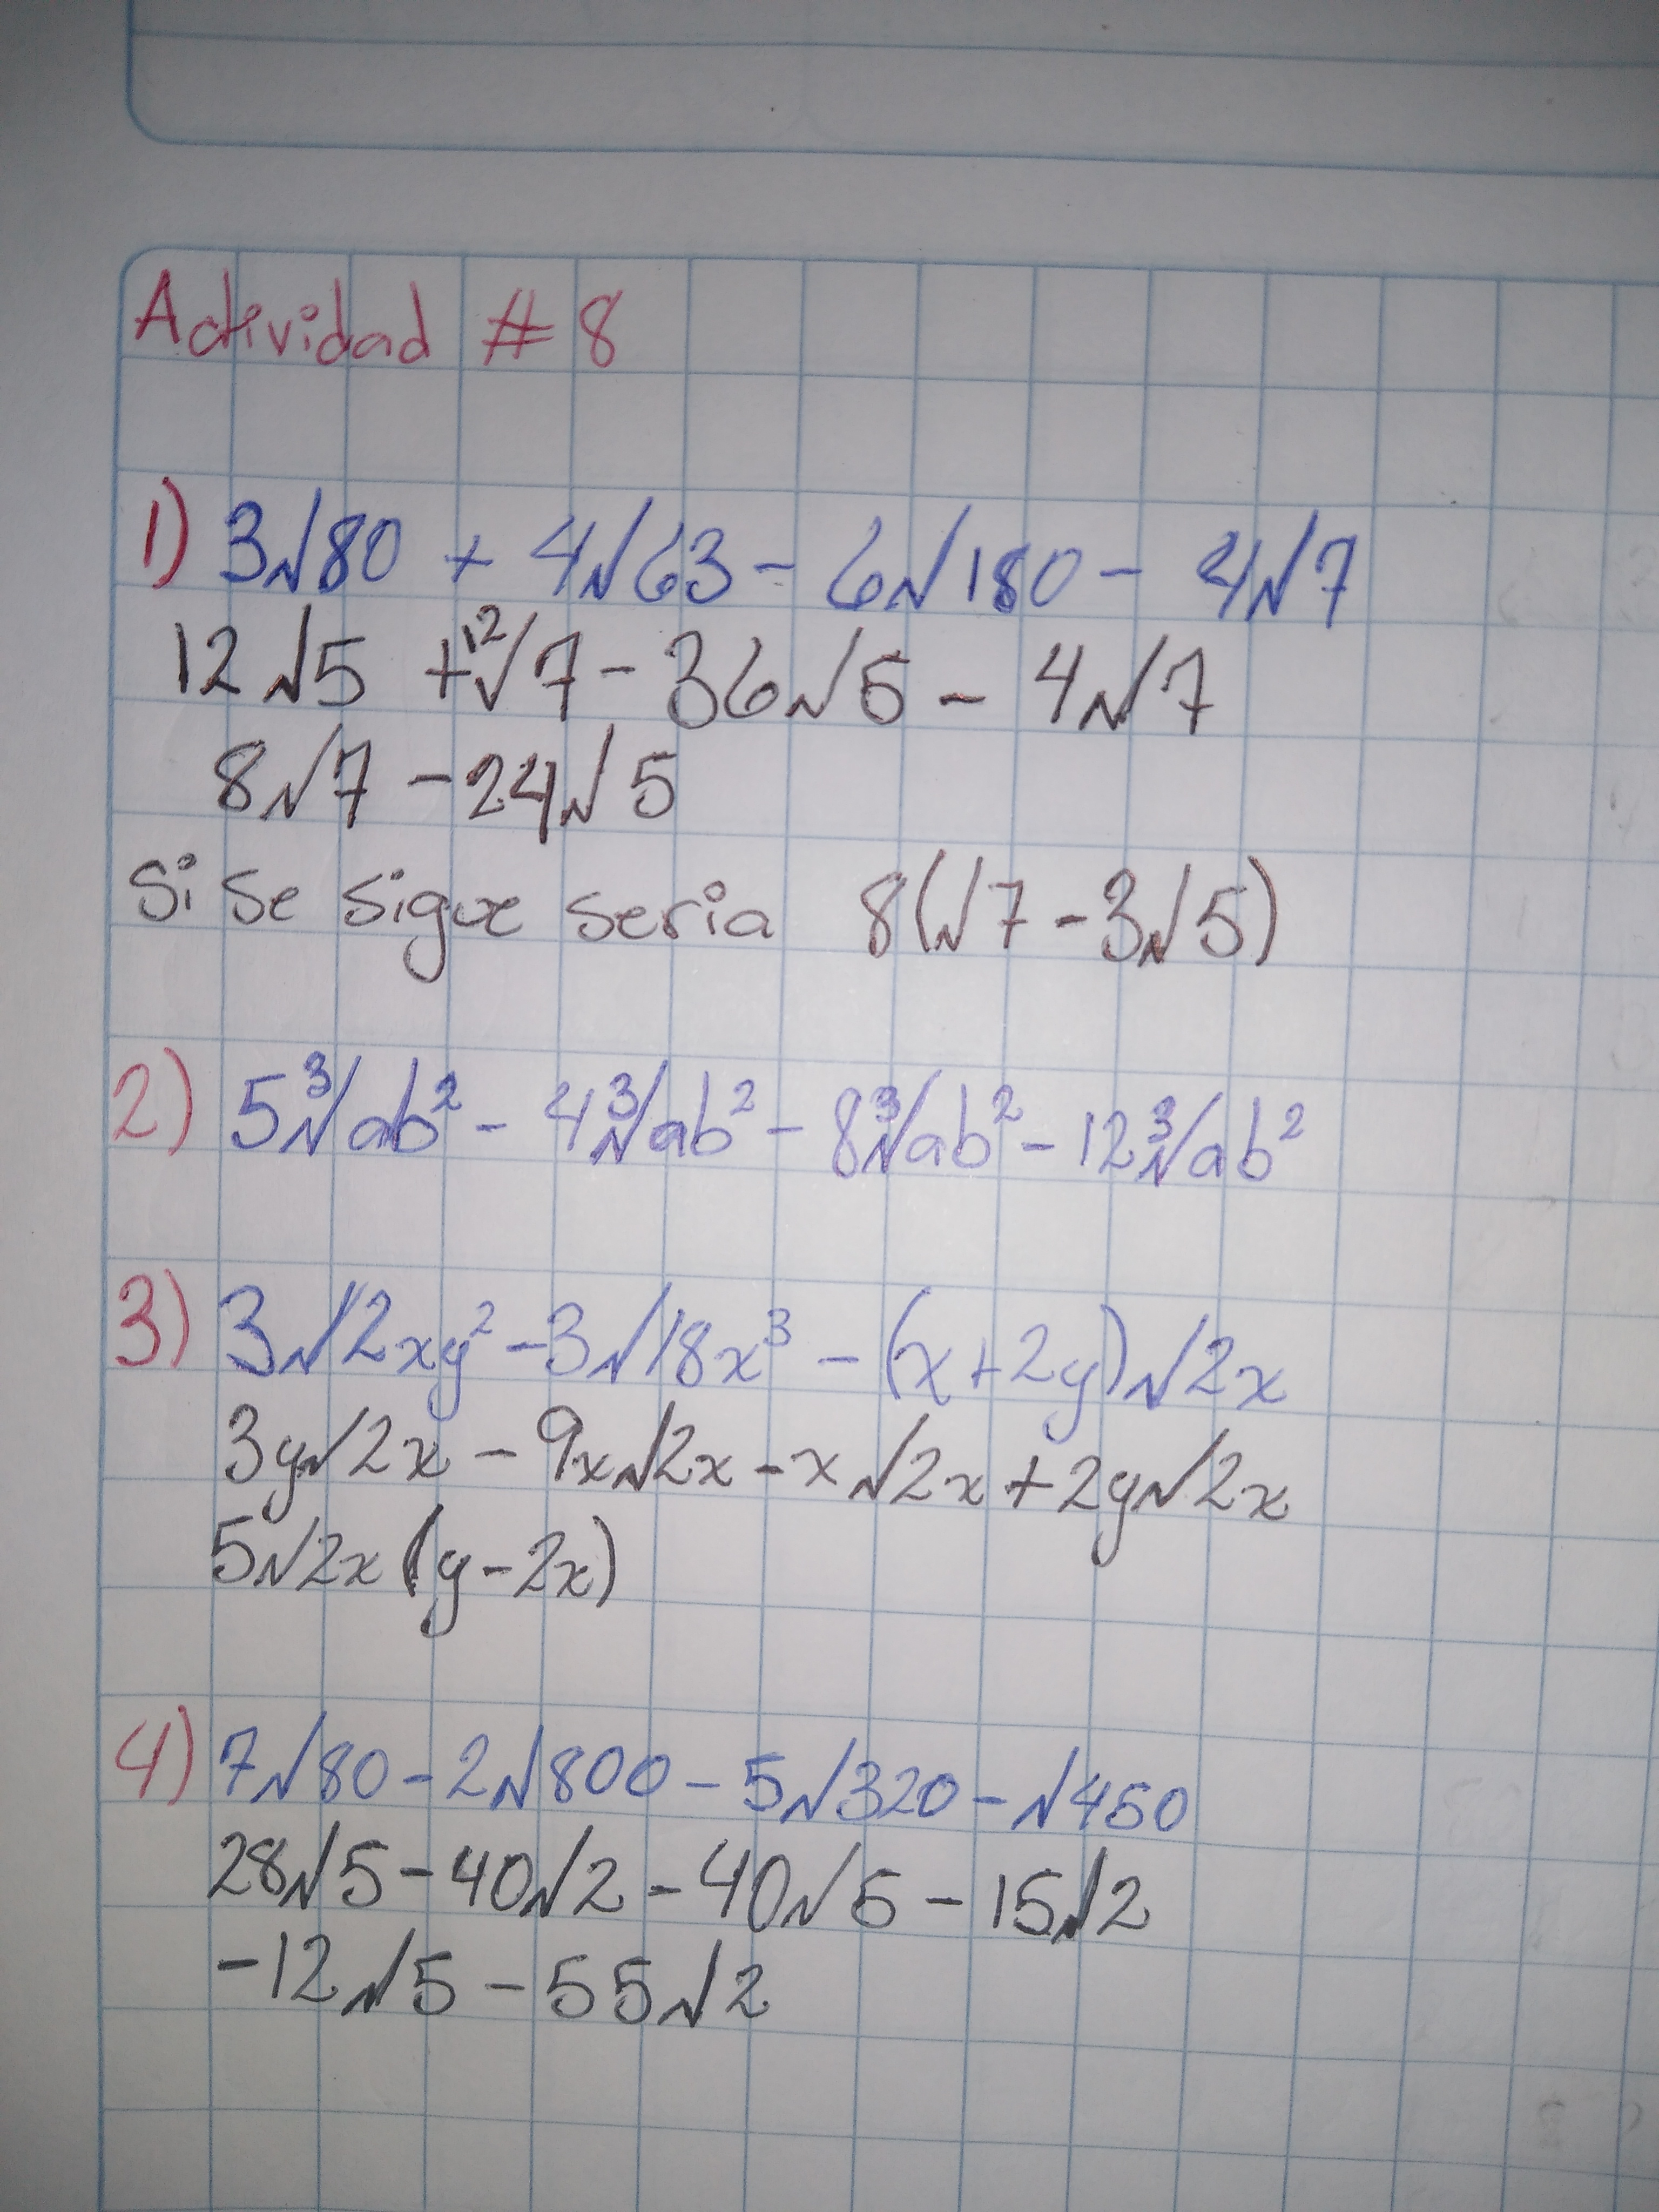 Actividad # 8
1) 3√80 + 4√63 - 6√180 - 4√7
12√5 + 12√7 - 36√5 - 4√7
8√7 - 24√5
Si se sigue seria 8(√7 - 3√5)
2) 5∛ab² - 4∛ab² - 8∛ab² - 12∛ab²
3) 3√2xy² - 3√18x³ - (x+2y)√2x
3y√2x - 9x√2x - x√2x + 2y√2x
5√2x (y - 2x)
4) 7√80 - 2√800 - 5√320 - √450
28√5 - 40√2 - 40√5 - 15√2
-12√5 - 55√2